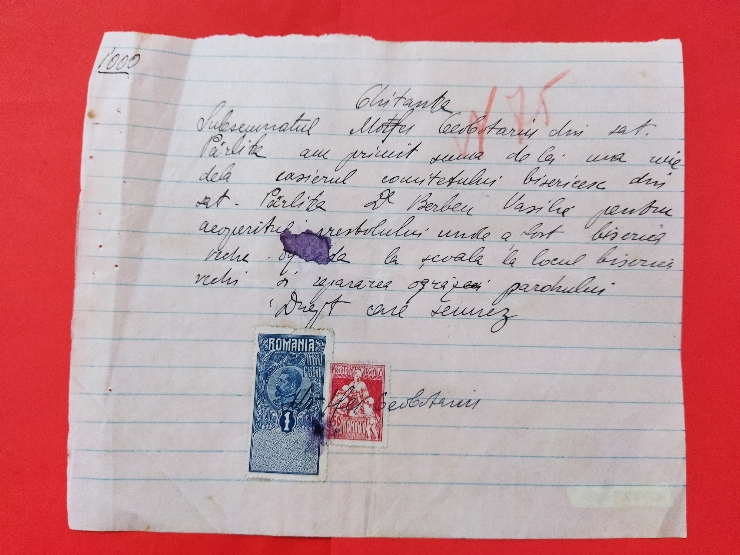 1000
N 75
Chitanta
Subsemnatul Ciobotariu din sat.
Părlita am primit suma de lei una mie
dela casierul comitetului bisericesc din
sat. Părlita Dl Berbeu Vasilie pentru
acoperitul prestolului unde a fost biserica
veche la școala la locul biserici
vechi și repararea parohului
Drept care semnez
ROMANIA
1
Ciobotariu